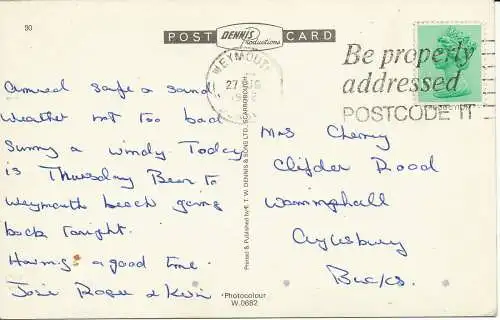 90
POST DENNIS Productions CARD
WEYMOUTH
27
Be properly
addressed
POSTCODE IT
Arrived safe & sound
Weather not too bad
Sunny & windy Today
is Thursday Been to
Weymouth beach going
back tonight.
Having a good time.
José Rose & Kevin
Printed & Published by E. T. W. DENNIS & SONS LTD. SCARBOROUGH
Mrs Cherry
Road
Aylesbury
Bucks.
'Photocolour'
W.0682